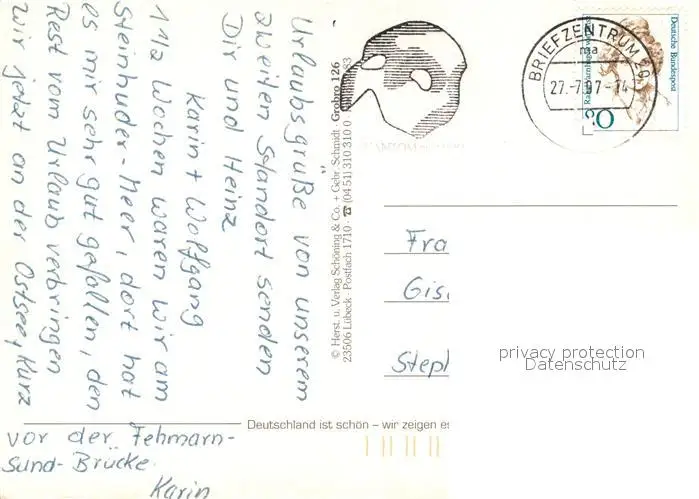 Urlaubsgrüße von unserem
zweiten Standort senden
Dir und Heinz
Karin + Wolfgang
1 1/2 Wochen waren wir am
Steinhuder-Meer, dort hat
es mir sehr gut gefallen, den
Rest vom Urlaub verbringen
wir jetzt an der Ostsee, kurz
vor der Fehmarn-
Sund-Brücke.
Karin
© Herst. u. Verlag Schöning & Co. + Gebr. Schmidt · Grobro 126
23506 Lübeck · Postfach 1710 · ☎ (04 51) 310 310 0
Deutschland ist schön – wir zeigen es
BRIEFZENTRUM 29
ma
27.-7.97-14
Deutsche Bundespost
Fra
Gis
Steph
privacy protection
Datenschutz